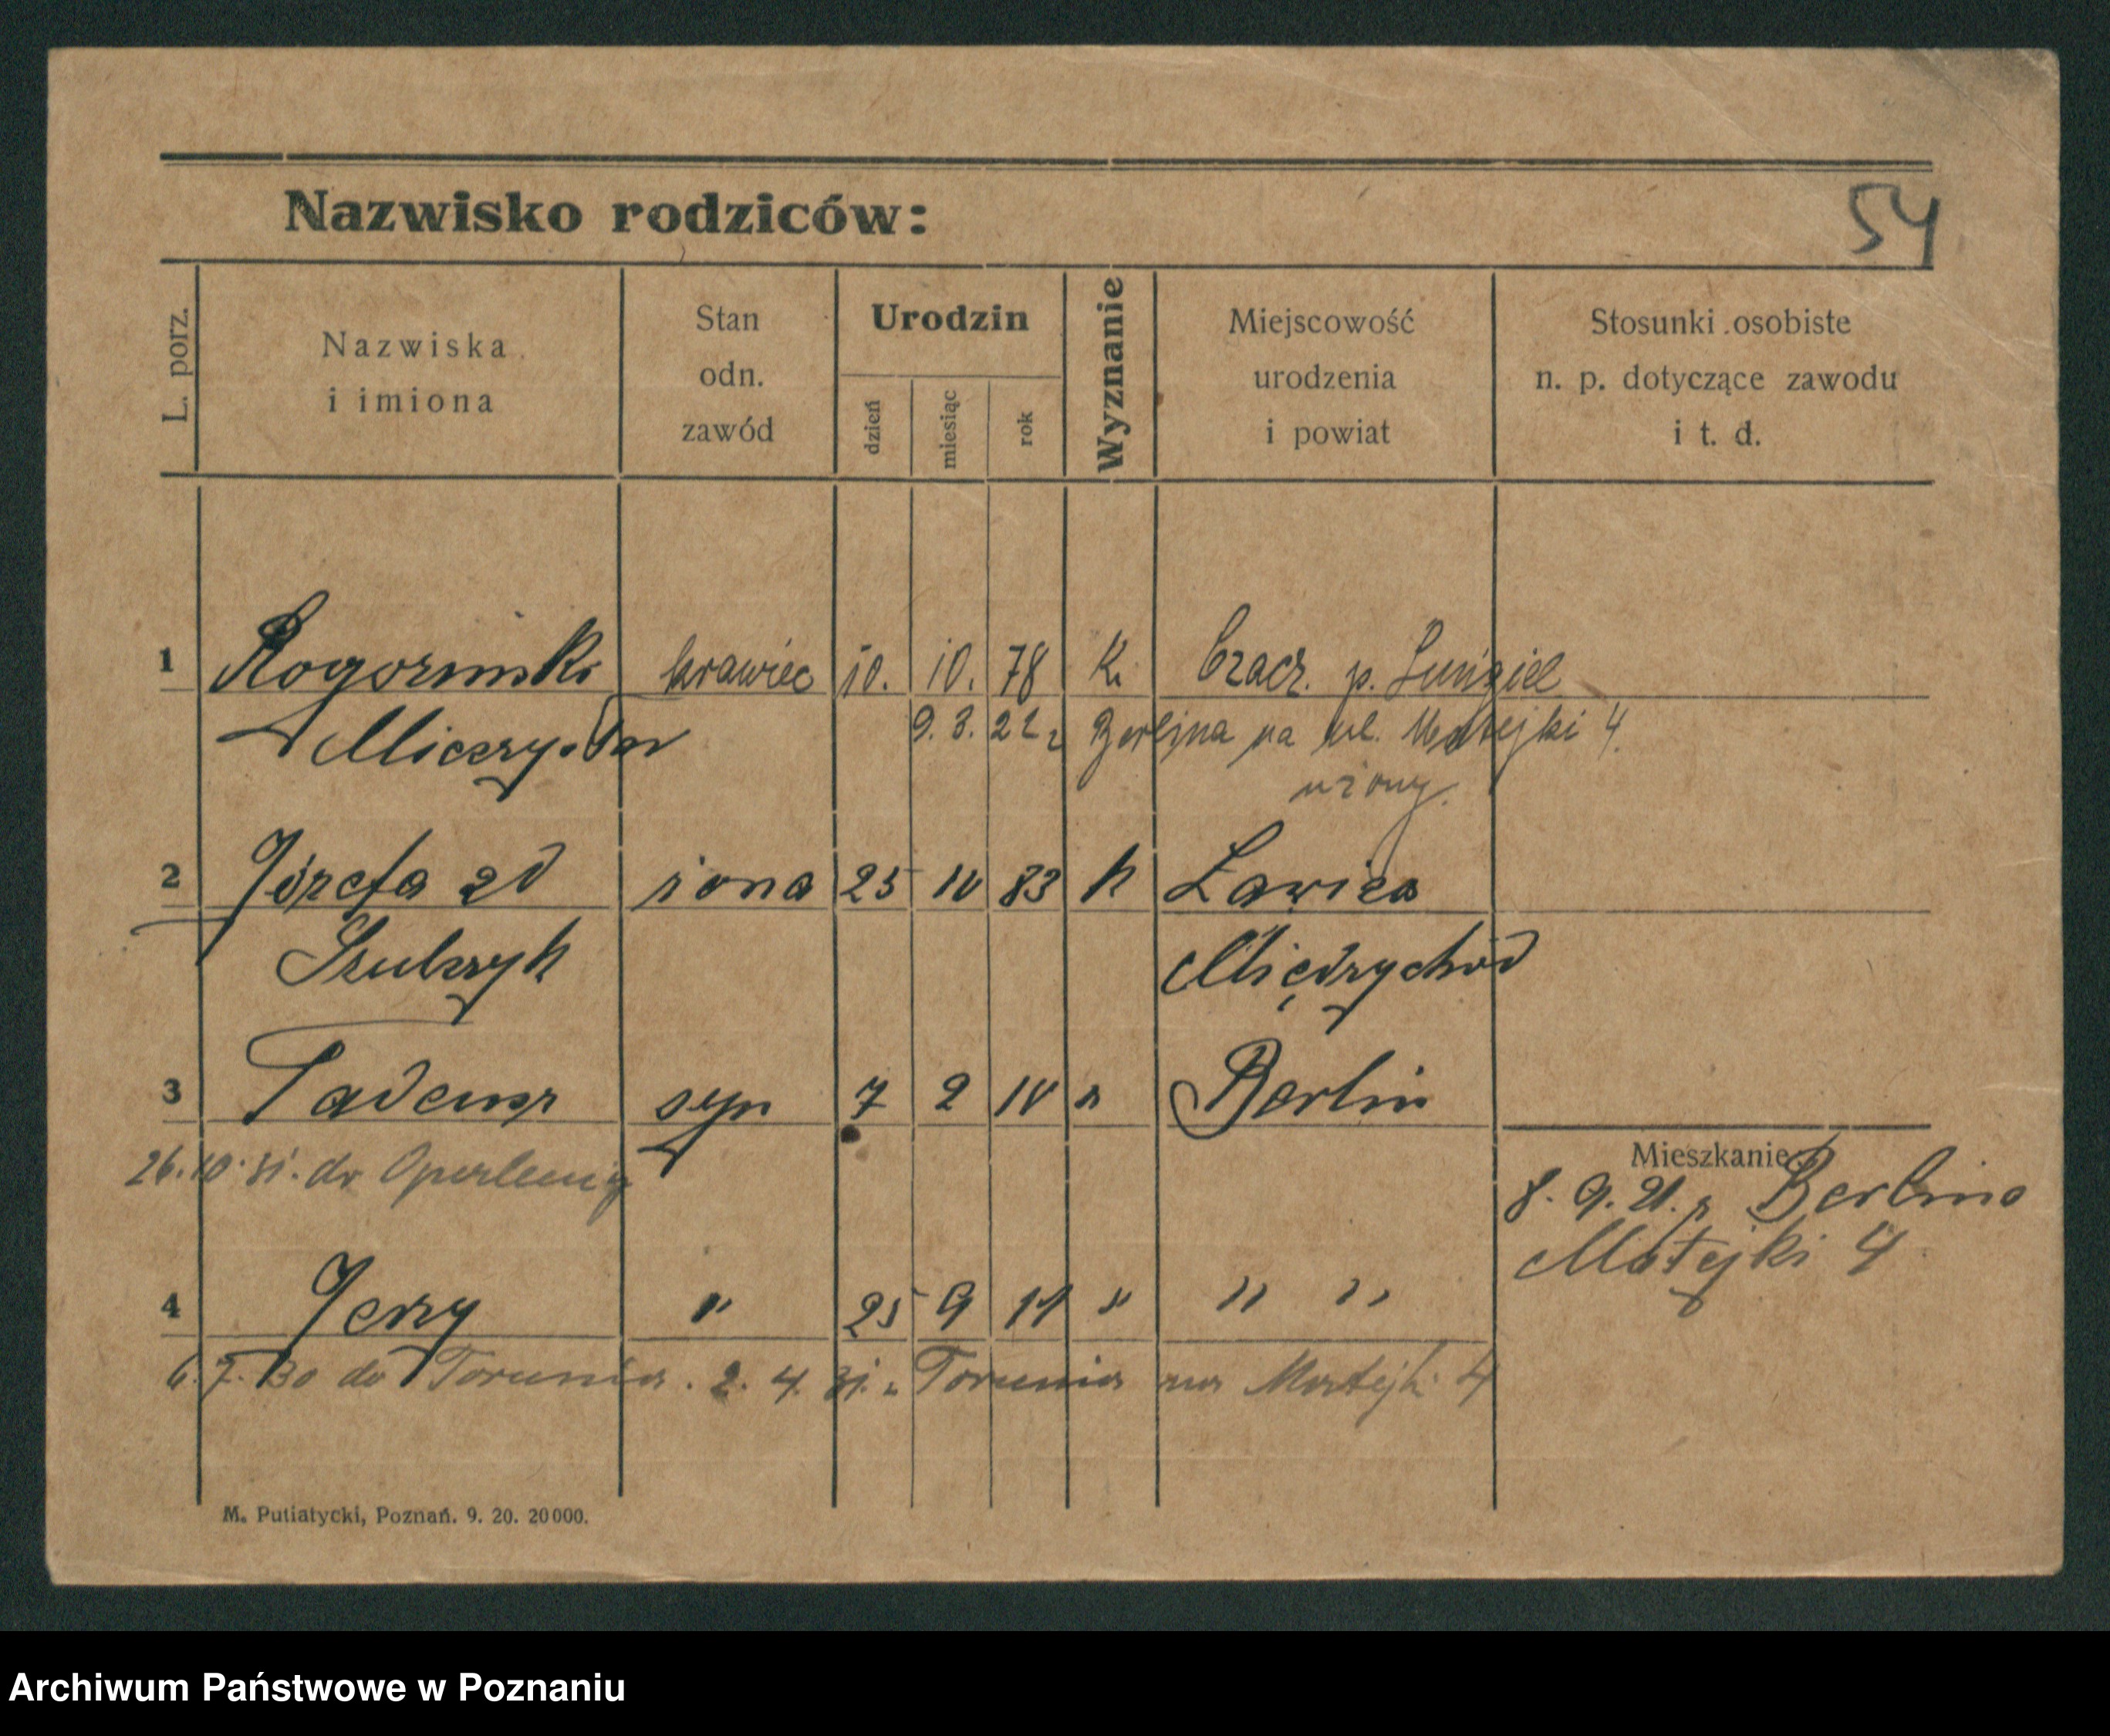 Nazwisko rodziców:
54
L. porz.
Nazwiska
i imiona
Stan
odn.
zawód
Urodzin
dzień
miesiąc
rok
Wyznanie
Miejscowość
urodzenia
i powiat
Stosunki osobiste
n. p. dotyczące zawodu
i t. d.
1 Rogoziński krawiec 10. 10. 78 K. Czacz. p. Śmigiel
Mieczysław 9. 3. 22 z Berlina na ul. Matejki 4.
2 Józefa zd żona 25 10 83 k Ławica
Szulczyk Międzychód
3 Tadeusz syn 7 2 10 " Berlin
26. 10. 31. do
Mieszkanie
8. 9. 21. z Berlina
Matejki 4
4 Jerzy " 25 9 11 " " "
6. 7. 30 do Torunia. 2. 4. 31. z Torunia na Matejki 4
M. Putiatycki, Poznań. 9. 20. 20000.
Archiwum Państwowe w Poznaniu